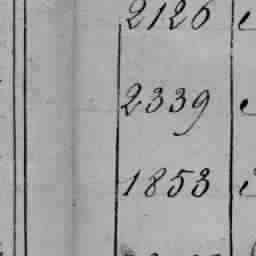 2126
2339
1853